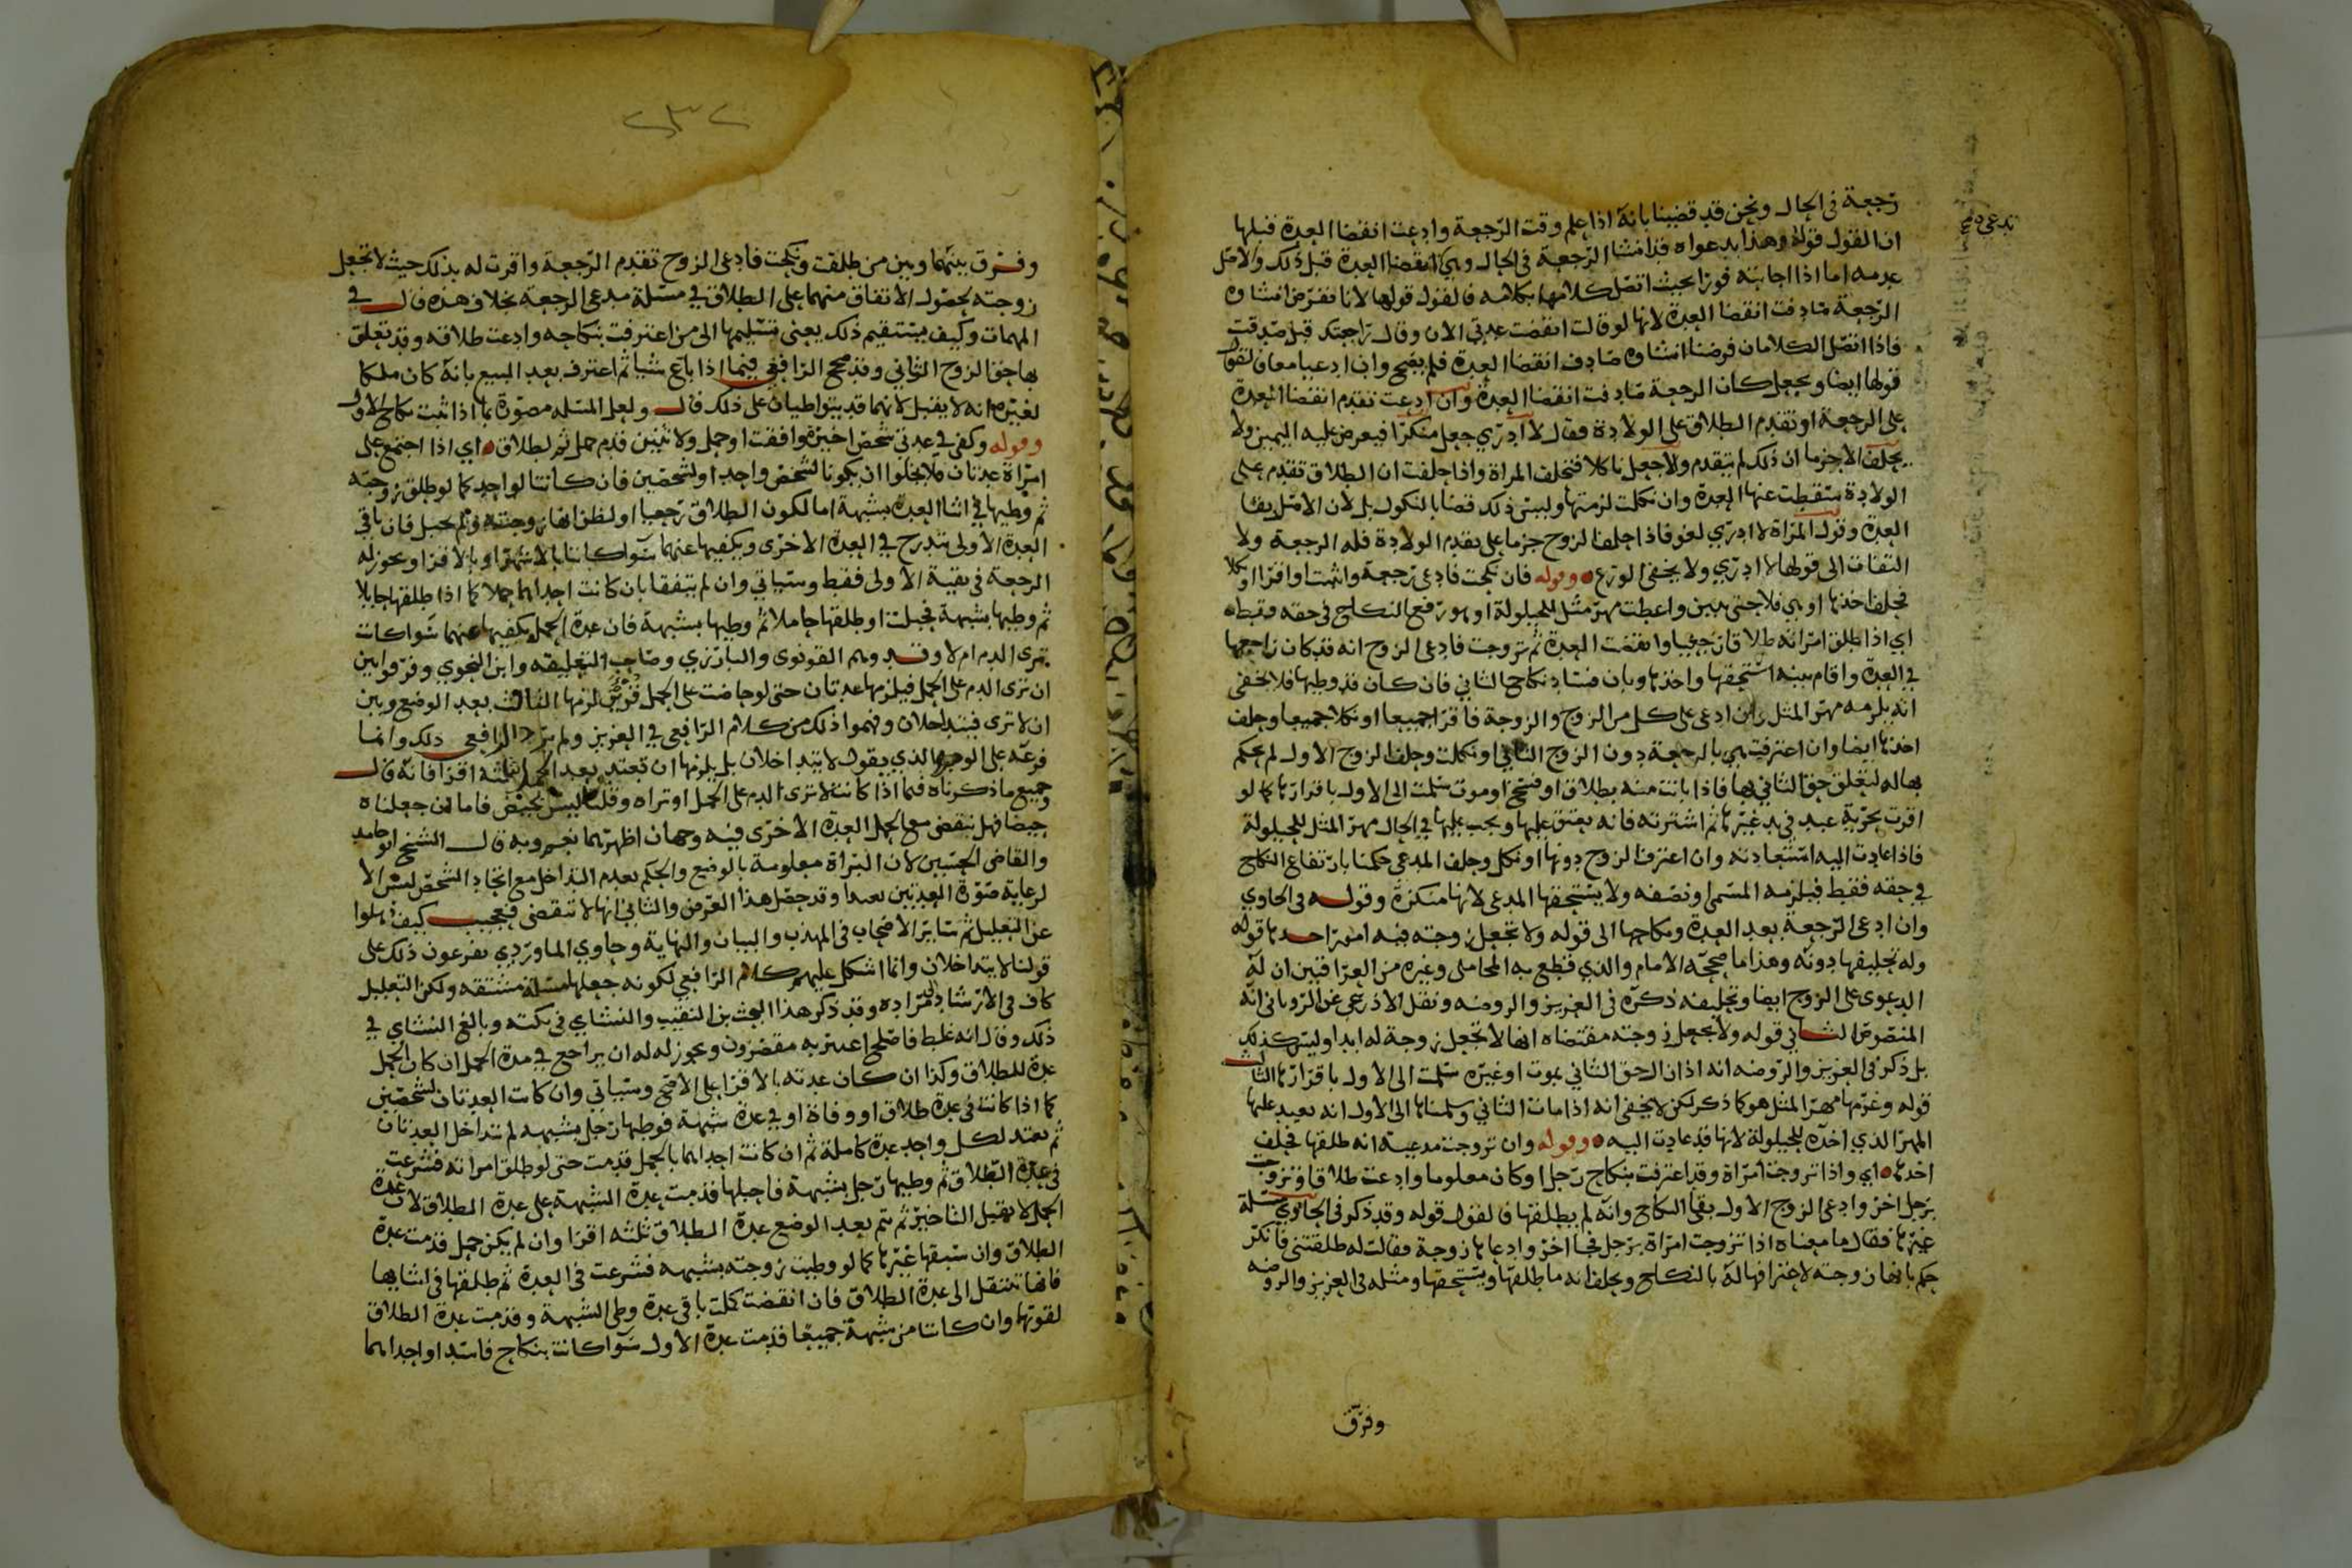 رجعة في الحال ونحن قد قضينا بانه اذا علم وقت الرجعة وادعت انقضا العدة قبلها
ان القول قوله وهذا بدعواه قد انشا الرجعة في الحال وهي انقضا العدة قبل ذلك والاصل
عدمه اما اذا اجابته فورا بحيث اتصل كلامها بكلامه فالقول قولها لانا نفرض انشاه
الرجعة صادفت انقضا العدة لانها لو قالت انقضت عدتي الان وقال راجعتك قبل صدقت
فاذا اتصل الكلامان فرضنا انشاه صادف انقضا العدة فلم يصح وان ادعيا معا فالقول
قولها ايضا ويجعل كان الرجعة صادفت انقضا العدة وان ادعت تقدم انقضا العدة
على الرجعة او تقدم الطلاق على الولادة فقال لا ادري جعل منكرا فيعرض عليه اليمين ولا
يحلف الا جزما ان ذلك لم يتقدم والا جعل ناكلا فتحلف المراة واذا حلفت ان الطلاق تقدم على
الولادة سقطت عنها العدة وان نكلت لزمتها وليس ذلك قضا بالنكول بل لان الاصل بقا
العدة وقول المراة لا ادري لغو فاذا حلف الزوج جزما على تقدم الولادة فله الرجعة ولا
التفات الى قولها لا ادري ولا يخفى الورع وقوله فان نكحت فادعى رجعة واثبت او اقرا او نكلا
فحلف اخذها او هي فلا حتى تبين واعطت مهر مثل للحيلولة او هو رفع النكاح في حقه فقط
اي اذا طلق امراته طلاقا رجعيا وانقضت العدة ثم تزوجت فادعى الزوج انه قد كان راجعها
في العدة واقام بينة استحقها واخذها وبان فساد نكاح الثاني فان كان قد وطيها فلا يخفى
انه يلزمه مهر المثل وان ادعى على كل من الزوج والزوجة فاقرا جميعا او نكلا جميعا وحلف
اخذها ايضا وان اعترفت هي بالرجعة دون الزوج الثاني او نكلت وحلف الزوج الاول لم يحكم
بها له لتعلق حق الثاني بها فاذا بانت منه بطلاق او فسخ او موت سلمت الى الاول باقرارها كما لو
اقرت بحرية عبد في يد غيرها ثم اشترته فانه يعتق عليها ويجب عليها في الحال مهر المثل للحيلولة
فاذا عادت اليه استعادته وان اعترف الزوج دونها او نكل وحلف المدعي حكمنا بارتفاع النكاح
في حقه فقط فيلزمه المسمى او نصفه ولا يستحقها المدعي لانها منكرة وقوله في الحاوي
وان ادعى الرجعة بعد العدة ونكاحها الى قوله ولا تجعل زوجته فيه امور احدها قوله
وله تحليفها دونه وهذا ما صححه الامام والذي قطع به المحاملي وغيره من العراقيين ان له
الدعوى على الزوج ايضا وتحليفه ذكره في العزيز والروضه ونقل الاذرعي عن الروياني انه
المنصوص الثاني قوله ولا تجعل زوجته مقتضاه انها لا تجعل زوجة له ابدا وليس كذلك
بل ذكر في العزيز والروضه انه اذا زال حق الثاني بموت او غيره سلمت الى الاول باقرارها الثالث
قوله وغرمها مهر المثل هو كما ذكر لكن لا يخفى انه اذا مات الثاني وسلمناها الى الاول انه يعيد عليها
المهر الذي اخذه للحيلولة لانها قد عادت اليه وقوله وان تزوجت مدعية انه طلقها فحلف
اخذها اي واذا تزوجت امراة وقد اعترفت بنكاح رجل او كان معلوما وادعت طلاقا وتزوجت
برجل اخر وادعى الزوج الاول بقا النكاح وانه لم يطلقها فالقول قوله وقد ذكر في الحاوي مسلة
غيرها فقال ما معناه اذا تزوجت امراة برجل فجا اخر وادعاها زوجة فقالت له طلقتني فانكر
حكم بانها زوجته لاعترافها له بالنكاح ويحلف انه ما طلقها ويستحقها ومثله في العزيز والروضه
وفرق
٢٣٢
وفرق بينهما وبين من طلقت ونكحت فادعى الزوج تقدم الرجعة واقرت له بذلك حيث لا تجعل
زوجته لحصول الاتفاق منهما على الطلاق في مسئلة مدعي الرجعة بخلاف هذه قال في
المهمات وكيف يستقيم ذلك يعني تسليمها الى من اعترفت بنكاحه وادعت طلاقه وقد تعلق
بها حق الزوج الثاني وقد صحح الرافعي فيما اذا باع شيا ثم اعترف بعد البيع بانه كان ملكا
لغيره انه لا يقبل لانهما قد يتواطيان على ذلك قال ولعل المسئله مصورة بما اذا ثبت نكاح الاول
وقوله وكفى في عدتي شخص اخيرة وافقت او حمل ولاثنين قدم حمل ثم لطلاق اي اذا اجتمع على
امراة عدتان فلا يخلوا ان يكونا لشخص واحد او لشخصين فان كانتا لواحد كما لو طلق زوجته
ثم وطيها في اثنا العدة بشبهة اما لكون الطلاق رجعيا او لظن انها زوجته ولم تحبل فان باقي
العدة الاولى تندرج في العدة الاخرى ويكفيها عنهما سوا كانتا بالاشهر او بالاقرا ويجوز له
الرجعة في بقية الاولى فقط وسياتي وان لم يتفقا بان كانت احداهما حملا كما اذا طلقها حايلا
ثم وطيها بشبهة فحبلت او طلقها حاملا ثم وطيها بشبهة فان عدة الحمل يكفيها عنهما سوا كانت
ترى الدم ام لا وقد وهم القونوي والبارزي وصاحب التعليقه وابن النحوي وفرقوا بين
ان ترى الدم على الحمل فيلزمها عدتان حتى لو حاضت على الحمل لزمها الثالث بعد الوضع وبين
ان لا ترى فيتداخلان وفهموا ذلك من كلام الرافعي في العزيز ولم يرد الرافعي ذلك وانما
فرعه على الوجه الذي يقول لا يتداخلان بل يلزمها ان تعتد بعد الحمل بثلثة اقرا فانه قال
وجميع ما ذكرناه فيما اذا كانت لا ترى الدم على الحمل او تراه وقلنا ليس بحيض فاما ان جعلناه
حيضا فهل تنقضي مع الحمل العدة الاخرى فيه وجهان اظهرهما نعم وبه قال الشيخ ابو حامد
والقاضي الحسين لان البراة معلومة بالوضع والحكم بعدم التداخل مع اتحاد الشخص ليس الا
لرعاية صورة العدتين تعبدا وقد حصل هذا الغرض والثاني انها لا تنقضي فعجيب كيف ذهلوا
عن التعليل ثم ساير الاصحاب في المهذب والبيان والنهاية وحاوي الماوردي يفرعون ذلك على
قولنا لا يتداخلان وانما اشكل عليهم كلام الرافعي لكونه جعلها مسئلة ولكن التعليل
كاف في الارشاد لمراده وقد ذكر هذا البحث بن النقيب والنشاي في نكته وبالغ النشاي في
ذلك وقال انه غلط فاصلح اعتر به مقصرون ويجوز له ان يراجع في مدة الحمل ان كان الحمل
عدة للطلاق وكذا ان كان عدته بالاقرا على الاصح وسياتي وان كانت العدتان لشخصين
كما اذا كانت في عدة طلاق او وفاة او في عدة شبهة فوطيها رجل بشبهه لم تتداخل العدتان
ثم تعتد لكل واحد عدة كاملة ثم ان كانت احداهما بالحمل قدمت حتى لو طلق امراته فشرعت
في عدة الطلاق ثم وطيها رجل بشبهة فاحبلها قدمت عدة الشبهة على عدة الطلاق لان عدة
الحمل لا تقبل التاخير ثم يتم بعد الوضع عدة الطلاق ثلثه اقرا وان لم يكن حمل قدمت عدة
الطلاق وان سبقها غيرها كما لو وطيت زوجته بشبهه فشرعت في العدة ثم طلقها في اثنايها
فانها تنتقل الى عدة الطلاق فان انقضت كملت باقي عدة وطي الشبهة وقدمت عدة الطلاق
لقوتها وان كانتا من شبهة جميعا قدمت عدة الاول سوا كانت بنكاح فاسد او احداهما